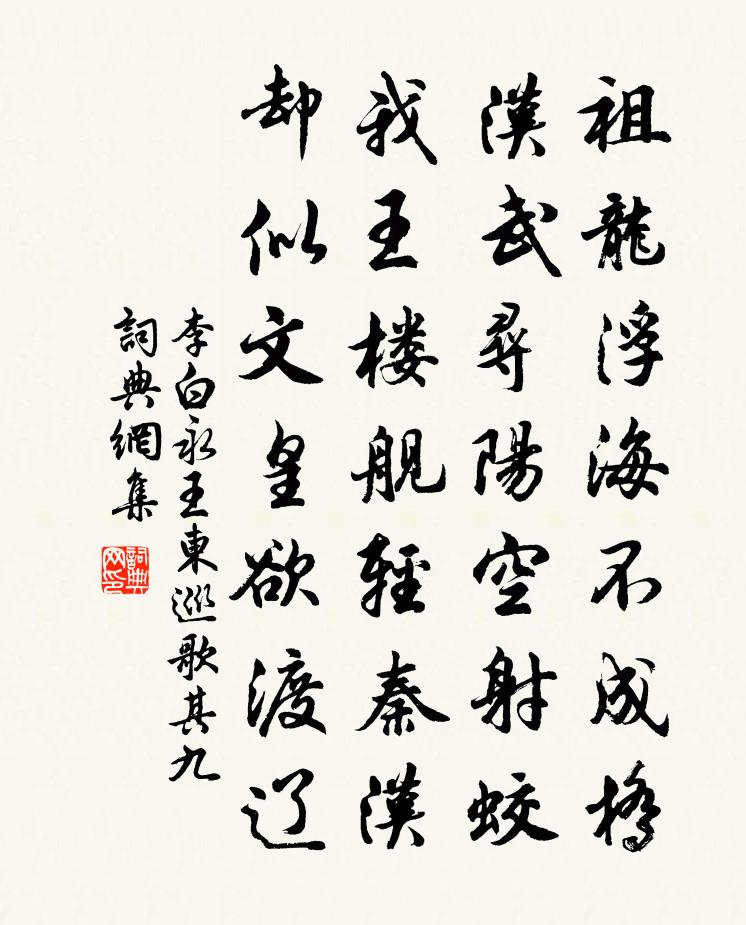 祖龍浮海不成橋
漢武尋陽空射蛟
我王楼舰輕秦漢
却似文皇欲渡辽
李白永王東巡歌其九
詞典網集
詞典网印